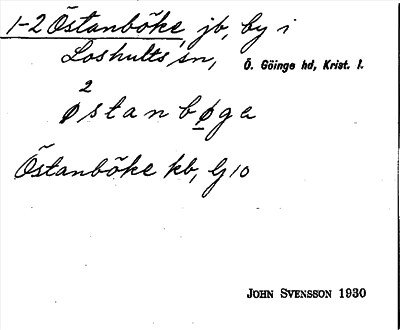 1-2 Östanböke, jb, by i
Loshults sn, Ö. Göinge hd, Krist. l.
2
østanbøga
Östanböke kb, G 10
JOHN SVENSSON 1930